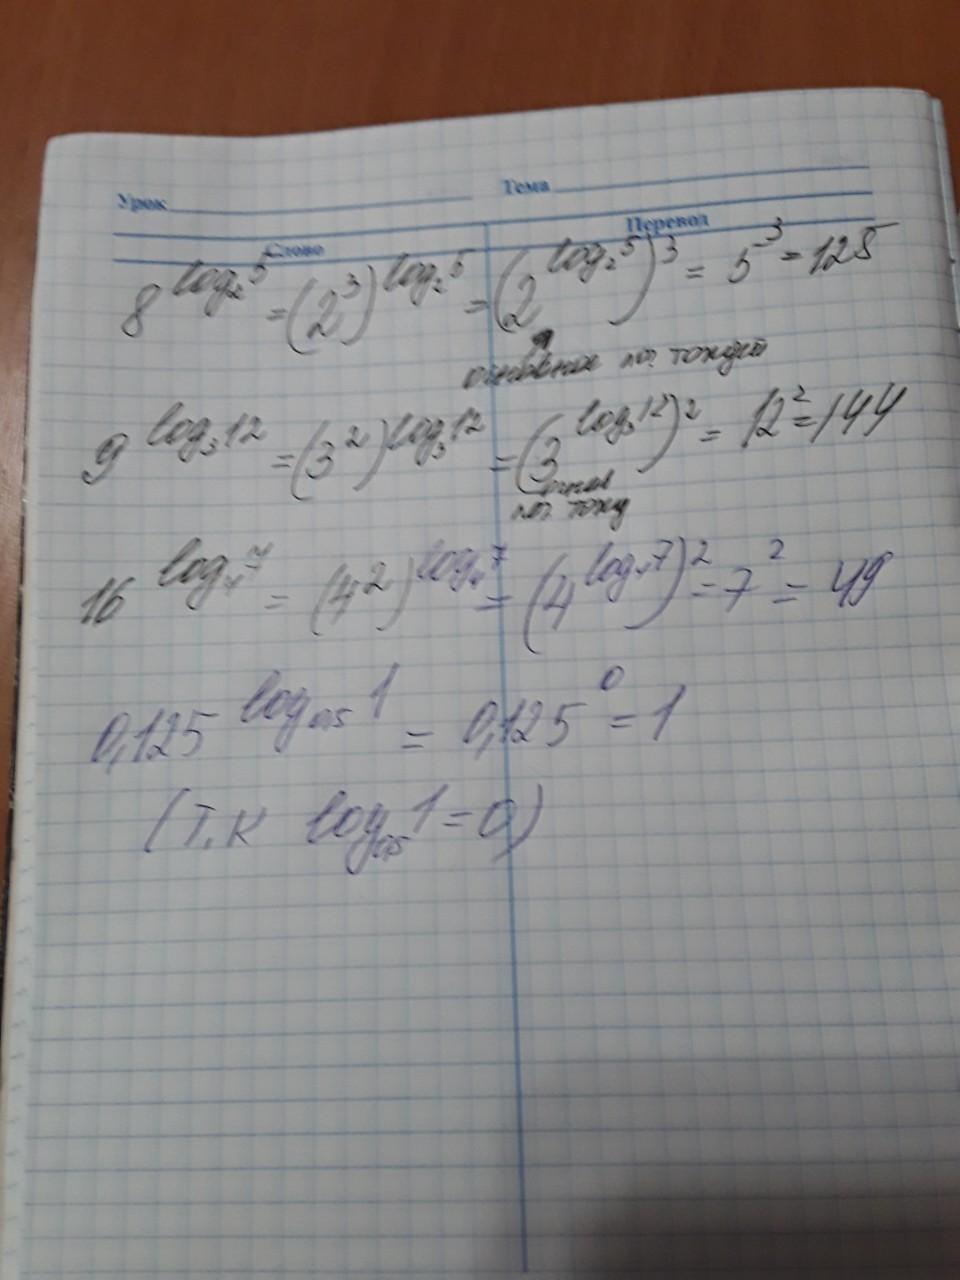 Урок Тема
Слово Перевод
8^{log₂5} = (2³)^{log₂5} = (2^{log₂5})³ = 5³ = 125
основное лог. тождест
9^{log₃12} = (3²)^{log₃12} = (3^{log₃12})² = 12² = 144
основ
лог. тожд
16^{log₄7} = (4²)^{log₄7} = (4^{log₄7})² = 7² = 49
0,125^{log_{0,5}1} = 0,125⁰ = 1
(т.к log_{0,5}1 = 0)